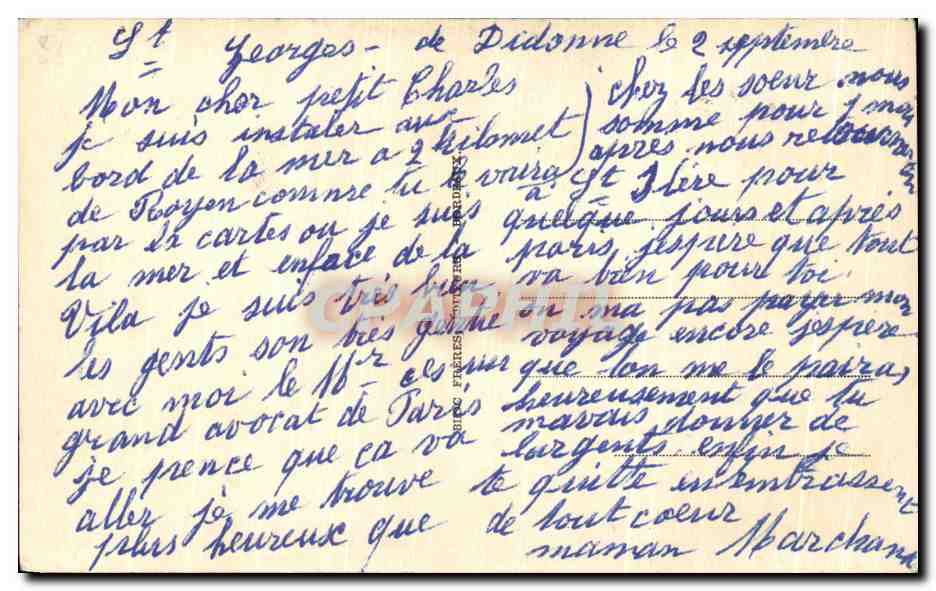 St Georges - de Didonne le 2 septembre
Mon cher petit Charles
je suis instaler aux
bord de la mer a 2 kilomet
de Royen comme tu le voira
par la cartes ou je suis
la mer et enface de la
Vila je suis très bien
les gents son très gentie
avec moi le Mr - ces un
grand avocat de Paris
je pence que ça va
aller je me trouve
plus heureux que
chez les soeur nous
somme pour 1 moi
après nous retournon
a St Hlère pour
quelque jours et après
paris jespere que tout
va bien pour toi
on ma pas payer mon
voyage encore jespere
que lon me le paira
heureusement que tu
mavais donner de
largents enfin je
te quitte en embrassent
de tout coeur
maman Marchand
FRERES, EDITEURS - BORDEAUX
CPARAMA